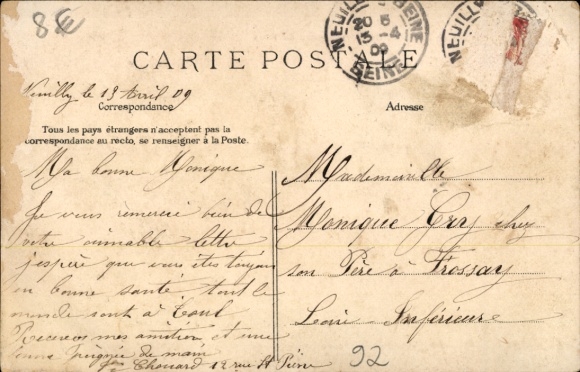 8€
NEUILLY SEINE
SEINE
CARTE POSTALE
Neuilly le 13 Avril 09
Correspondance
Adresse
Tous les pays étrangers n'acceptent pas la
correspondance au recto, se renseigner à la Poste.
Ma bonne Monique
Je vous remercie bien de
votre aimable lettre
j'espère que vous êtes toujours
en bonne santé tout le
monde sont à
Recevez mes amitiés et une
bonne poignée de main
Chouard 12 rue St Pierre
Mademoiselle
Monique chez
son Père à Frossay
Loire Inférieure
92